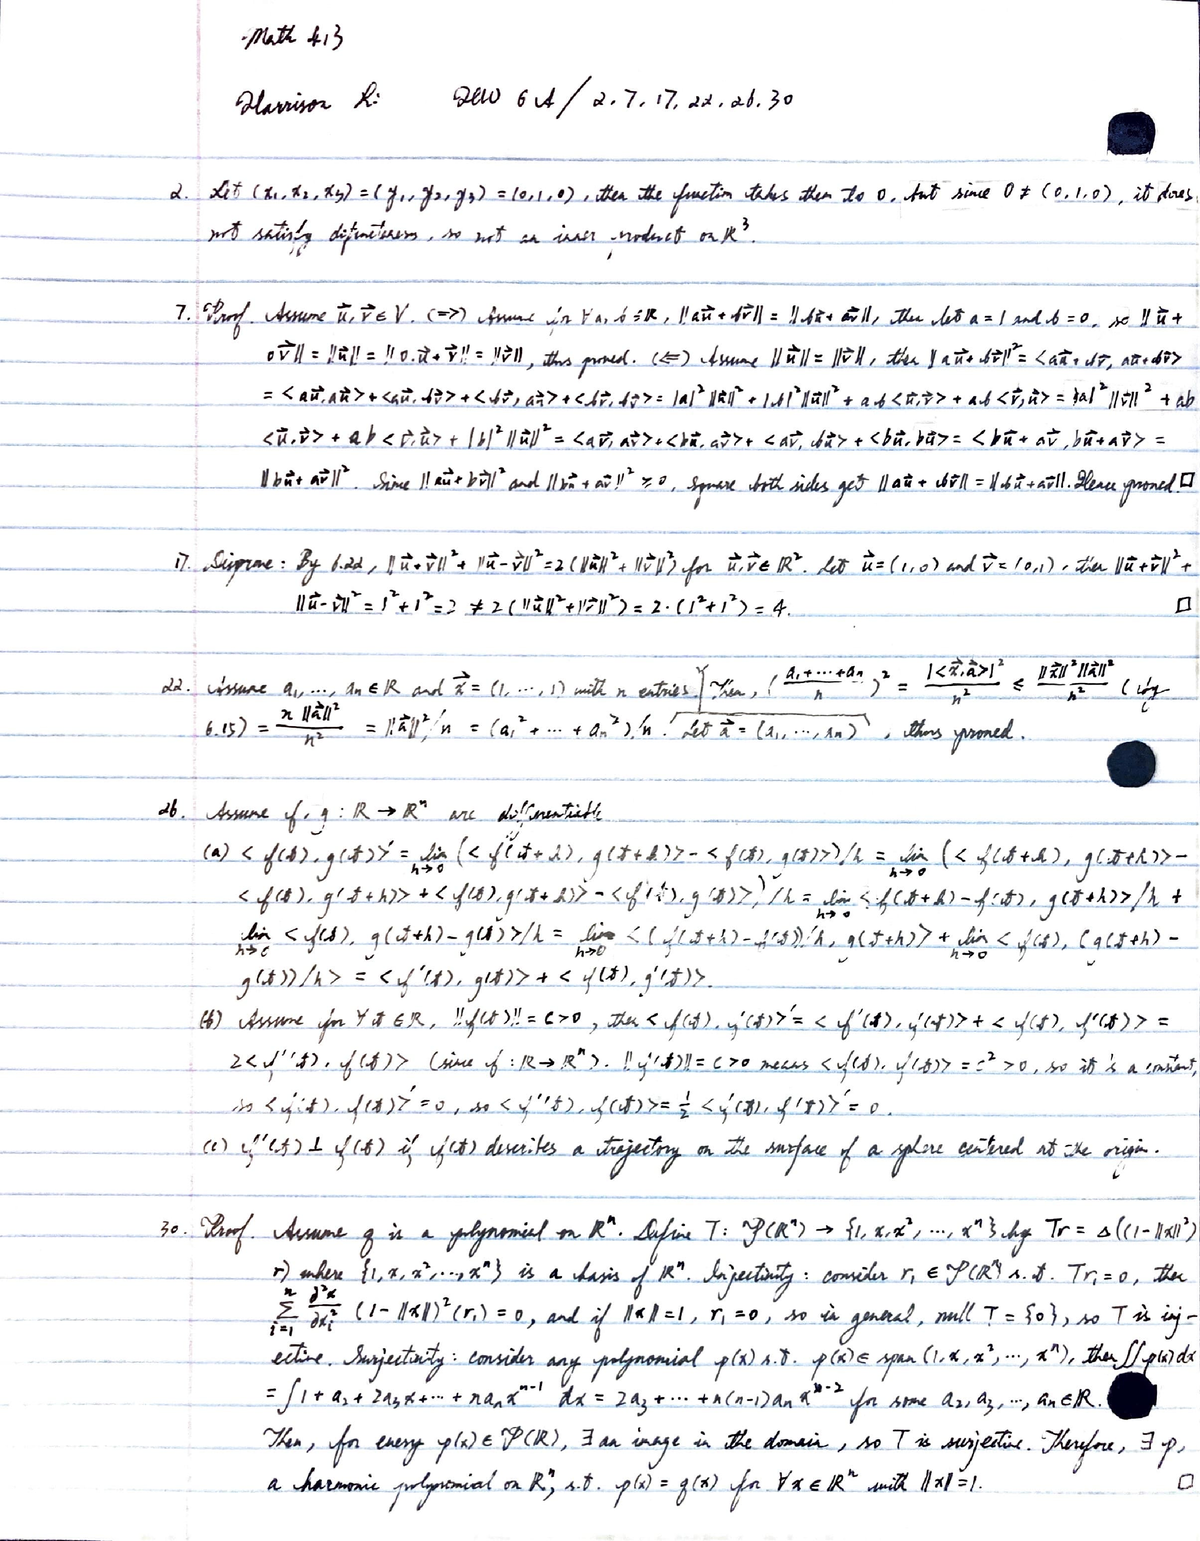 Math 413
Harrison Li HW 6A / 2, 7, 17, 22, 26, 30
2. Let (x₁, x₂, x₃) = (y₁, y₂, y₃) = (0,1,0), then the function takes them to 0, but since 0 ≠ (0,1,0), it does
not satisfy definiteness, so not an inner product on ℝ³.
7. Proof. Assume u⃗, v⃗ ∈ V. (=>) Assume for ∀a, b ∈ ℝ, ||au⃗ + bv⃗|| = ||bu⃗ + av⃗||, then let a = 1 and b = 0, so ||u⃗ +
0v⃗|| = ||u⃗|| = ||0·u⃗ + v⃗|| = ||v⃗||, thus proved. (<=) Assume ||u⃗|| = ||v⃗||, then ||au⃗ + bv⃗||² = <au⃗ + bv⃗, au⃗ + bv⃗>
= <au⃗, au⃗> + <au⃗, bv⃗> + <bv⃗, au⃗> + <bv⃗, bv⃗> = |a|² ||u⃗||² + |b|² ||u⃗||² + ab <u⃗, v⃗> + ab <v⃗, u⃗> = |a|² ||v⃗||² + ab
<u⃗, v⃗> + ab <v⃗, u⃗> + |b|² ||u⃗||² = <av⃗, av⃗> + <bu⃗, av⃗> + <av⃗, bu⃗> + <bu⃗, bu⃗> = <bu⃗ + av⃗, bu⃗ + av⃗> =
||bu⃗ + av⃗||². Since ||au⃗ + bv⃗||² and ||bu⃗ + av⃗||² ≥ 0, square both sides get ||au⃗ + bv⃗|| = ||bu⃗ + av⃗||. Hence proved □
17. Suppose: By 6.22, ||u⃗ + v⃗||² + ||u⃗ - v⃗||² = 2(||u⃗||² + ||v⃗||²) for u⃗, v⃗ ∈ ℝ². Let u⃗ = (1,0) and v⃗ = (0,1), then ||u⃗ + v⃗||² +
||u⃗ - v⃗||² = 1² + 1² = 2 ≠ 2(||u⃗||² + ||v⃗||²) = 2·(1² + 1²) = 4. □
22. Assume a₁, ..., aₙ ∈ ℝ and x⃗ = (1, ..., 1) with n entries. Then, ((a₁ + ... + aₙ)/n)² = |<x⃗, a⃗>|²/n² ≤ ||x⃗||² ||a⃗||²/n² (by
6.15) = n ||a⃗||²/n² = ||a⃗||²/n = (a₁² + ... + aₙ²)/n. Let a⃗ = (a₁, ..., aₙ), thus proved.
26. Assume f, g : ℝ → ℝⁿ are differentiable
(a) <f(t), g(t)>' = lim h→0 (<f(t+h), g(t+h)> - <f(t), g(t)>)/h = lim h→0 (<f(t+h), g(t+h)> -
<f(t), g(t+h)> + <f(t), g(t+h)> - <f(t), g(t)>)/h = lim h→0 <f(t+h) - f(t), g(t+h)>/h +
lim h→0 <f(t), g(t+h) - g(t)>/h = lim h→0 <(f(t+h) - f(t))/h, g(t+h)> + lim h→0 <f(t), (g(t+h) -
g(t))/h> = <f'(t), g(t)> + <f(t), g'(t)>.
(b) Assume for ∀t ∈ ℝ, ||f(t)|| = c > 0, then <f(t), f(t)>' = <f'(t), f(t)> + <f(t), f'(t)> =
2<f'(t), f(t)> (since f : ℝ → ℝⁿ). ||f(t)|| = c > 0 means <f(t), f(t)> = c² > 0, so it is a constant,
so <f(t), f(t)>' = 0, so <f'(t), f(t)> = ½ <f(t), f(t)>' = 0.
(c) f'(t) ⊥ f(t) if f(t) describes a trajectory on the surface of a sphere centered at the origin.
30. Proof. Assume q is a polynomial on ℝⁿ. Define T: 𝒫(ℝⁿ) → {1, x, x², ..., xⁿ} by Tr = Δ((1 - ||x||²)
r) where {1, x, x², ..., xⁿ} is a basis of ℝⁿ. Injectivity: consider r₁ ∈ 𝒫(ℝⁿ) s.t. Tr₁ = 0, then
∑ i=1 n ∂²x/∂xᵢ² (1 - ||x||)² (r₁) = 0, and if ||x|| = 1, r₁ = 0, so in general, null T = {0}, so T is inj-
ective. Surjectivity: consider any polynomial p(x) s.t. p(x) ∈ span (1, x, x², ..., xⁿ), then ∬ p(x) dx
= ∫ 1 + a₂ + 2a₃x + ... + naₙxⁿ⁻¹ dx = 2a₃ + ... + n(n-1)aₙxⁿ⁻² for some a₂, a₃, ..., aₙ ∈ ℝ.
Then, for every p(x) ∈ 𝒫(ℝ), ∃ an image in the domain, so T is surjective. Therefore, ∃ p,
a harmonic polynomial on ℝⁿ, s.t. p(x) = q(x) for ∀x ∈ ℝⁿ with ||x|| = 1. □